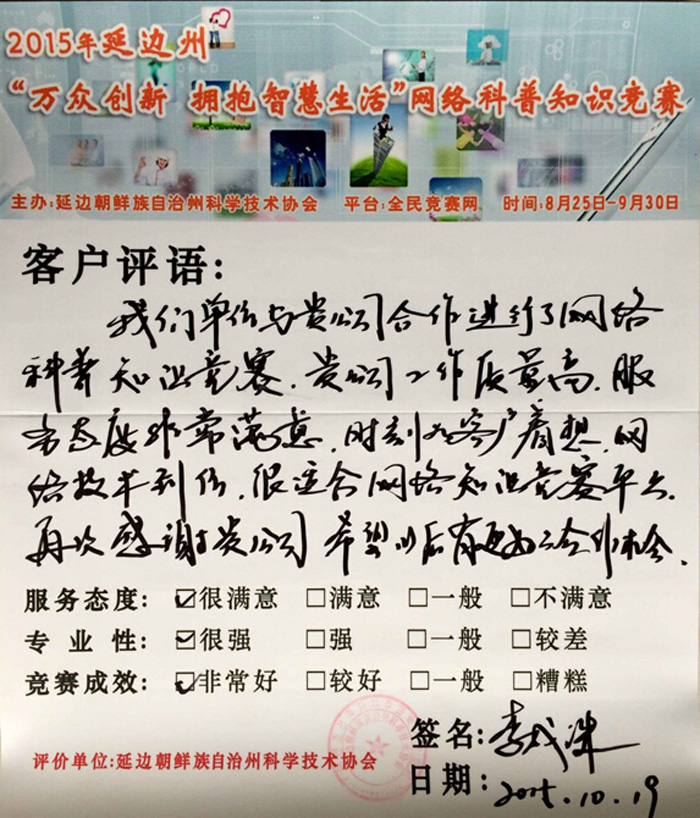 2015年延边州
“万众创新 拥抱智慧生活”网络科普知识竞赛
主办:延边朝鲜族自治州科学技术协会 平台:全民竞赛网 时间:8月25日-9月30日
客户评语:
我们单位与贵公司合作进行了网络
科普知识竞赛.贵公司工作质量高.服
务态度非常满意.时刻为客户着想.网
络技术到位.很适合网络知识竞赛平台.
再次感谢贵公司 希望以后有更多的合作机会.
服务态度: ☑很满意 □满意 □一般 □不满意
专业性: ☑很强 □强 □一般 □较差
竞赛成效: ☑非常好 □较好 □一般 □糟糕
签名:李成
评价单位:延边朝鲜族自治州科学技术协会
日期: 2015.10.19